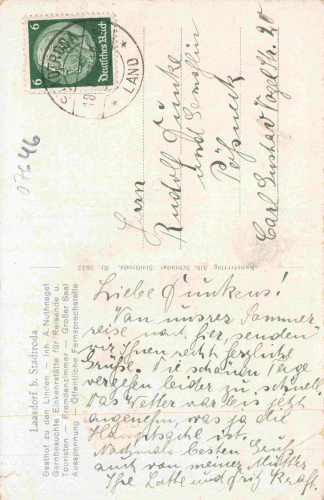 6
Deutsches Reich
LAND
0 7646
Herrn
Rudolf Funke
und Gemahlin
Pößneck
Carl Gustav Vogel Str. 20
Kunstverlag Alb. Schrader Stadtroda, Nr. 3632
Laasdorf b. Stadtroda.
Gasthof zu den Linden — Inh. A. Nuthnagel
Gernbesuchte Einkehrstätte für Reisende u.
Touristen — Fremdenzimmer — Großer Saal
Ausspannung — Öffentliche Fernsprechstelle
Liebe Funkens!
Von unsrer Sommer
reise nach hier senden
wir Ihnen recht herzliche
Grüße. Die schönen Tage
vergehen leider zu schnell.
Das Wetter war bis jetzt
angenehm, was ja die
Hauptsache ist.
Nochmals besten Gruß
auch von meiner Mutter
Ihre Lotte und Fritz Kraft.